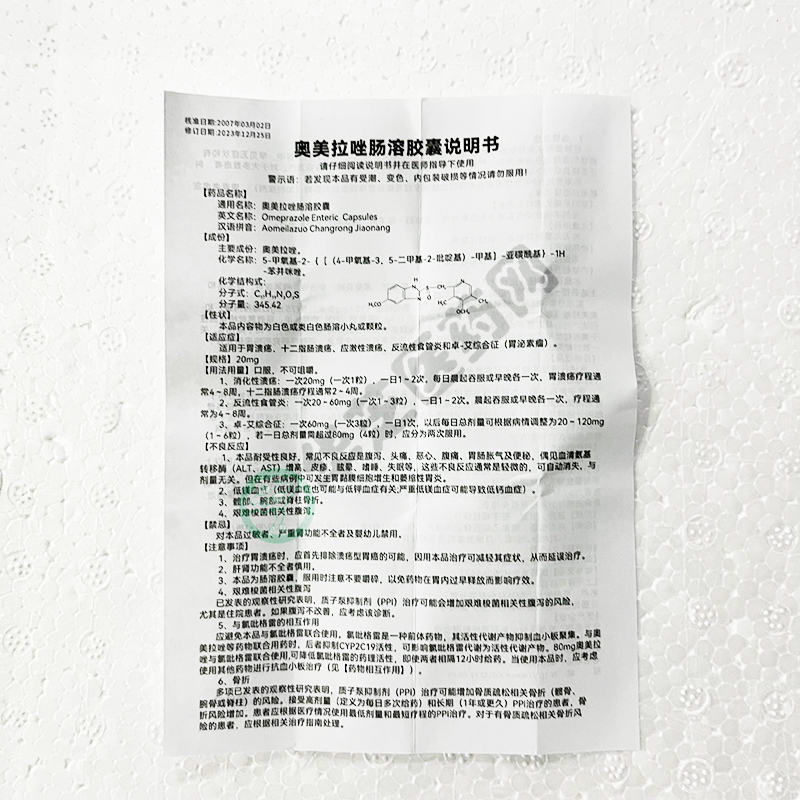 核准日期:2007年03月02日
修订日期:2023年12月25日
奥美拉唑肠溶胶囊说明书
请仔细阅读说明书并在医师指导下使用
警示语：若发现本品有受潮、变色、内包装破损等情况请勿服用!
【药品名称】
通用名称：奥美拉唑肠溶胶囊
英文名称：Omeprazole Enteric Capsules
汉语拼音：Aomeilazuo Changrong Jiaonang
【成份】
主要成份：奥美拉唑。
化学名称：5-甲氧基-2-{［（4-甲氧基-3，5-二甲基-2-吡啶基）-甲基］-亚磺酰基}-1H
-苯并咪唑。
化学结构式：
分子式：C₁₇H₁₉N₃O₃S
分子量：345.42
【性状】
本品内容物为白色或类白色肠溶小丸或颗粒。
【适应症】
适用于胃溃疡、十二指肠溃疡、应激性溃疡、反流性食管炎和卓-艾综合征（胃泌素瘤）。
【规格】20mg
【用法用量】口服，不可咀嚼。
1、消化性溃疡：一次20mg（一次1粒），一日1~2次，每日晨起吞服或早晚各一次，胃溃疡疗程通
常4~8周，十二指肠溃疡疗程通常2~4周。
2、反流性食管炎：一次20~60mg（一次1~3粒），一日1~2次。晨起吞服或早晚各一次，疗程通
常为4~8周。
3、卓-艾综合征：一次60mg（一次3粒），一日1次，以后每日总剂量可根据病情调整为20~120mg
（1~6粒），若一日总剂量需超过80mg（4粒）时，应分为两次服用。
【不良反应】
1、本品耐受性良好，常见不良反应是腹泻、头痛、恶心、腹痛、胃肠胀气及便秘，偶见血清氨基
转移酶（ALT，AST）增高、皮疹、眩晕、嗜睡、失眠等，这些不良反应通常是轻微的，可自动消失，与
剂量无关。但在有些病例中可发生胃黏膜细胞增生和萎缩性胃炎。
2、低镁血症（低镁血症也可能与低钾血症有关;严重低镁血症可能导致低钙血症）。
3、髋部、腕部或脊柱骨折。
4、艰难梭菌相关性腹泻。
【禁忌】
对本品过敏者、严重肾功能不全者及婴幼儿禁用。
【注意事项】
1、治疗胃溃疡时，应首先排除溃疡型胃癌的可能，因用本品治疗可减轻其症状，从而延误治疗。
2、肝肾功能不全者慎用。
3、本品为肠溶胶囊，服用时注意不要嚼碎，以免药物在胃内过早释放而影响疗效。
4、艰难梭菌相关性腹泻
已发表的观察性研究表明，质子泵抑制剂（PPI）治疗可能会增加艰难梭菌相关性腹泻的风险，
尤其是住院患者。如果腹泻不改善，应考虑该诊断。
5、与氯吡格雷的相互作用
应避免本品与氯吡格雷联合使用，氯吡格雷是一种前体药物，其活性代谢产物抑制血小板聚集。与奥
美拉唑等药物联合用药时，后者抑制CYP2C19活性，可影响氯吡格雷代谢为活性代谢产物。80mg奥美拉
唑与氯吡格雷联合使用,可降低氯吡格雷的药理活性，即使两者相隔12小时给药。当使用本品时，应考虑
使用其他药物进行抗血小板治疗（见【药物相互作用】）。
6、骨折
多项已发表的观察性研究表明，质子泵抑制剂（PPI）治疗可能增加骨质疏松相关骨折（髋骨、
腕骨或脊柱）的风险。接受高剂量（定义为每日多次给药）和长期（1年或更久）PPI治疗的患者，骨
折风险增加。患者应根据医疗情况使用最低剂量和最短疗程的PPI治疗。对于有骨质疏松相关骨折风
险的患者，应根据相关治疗指南处理。